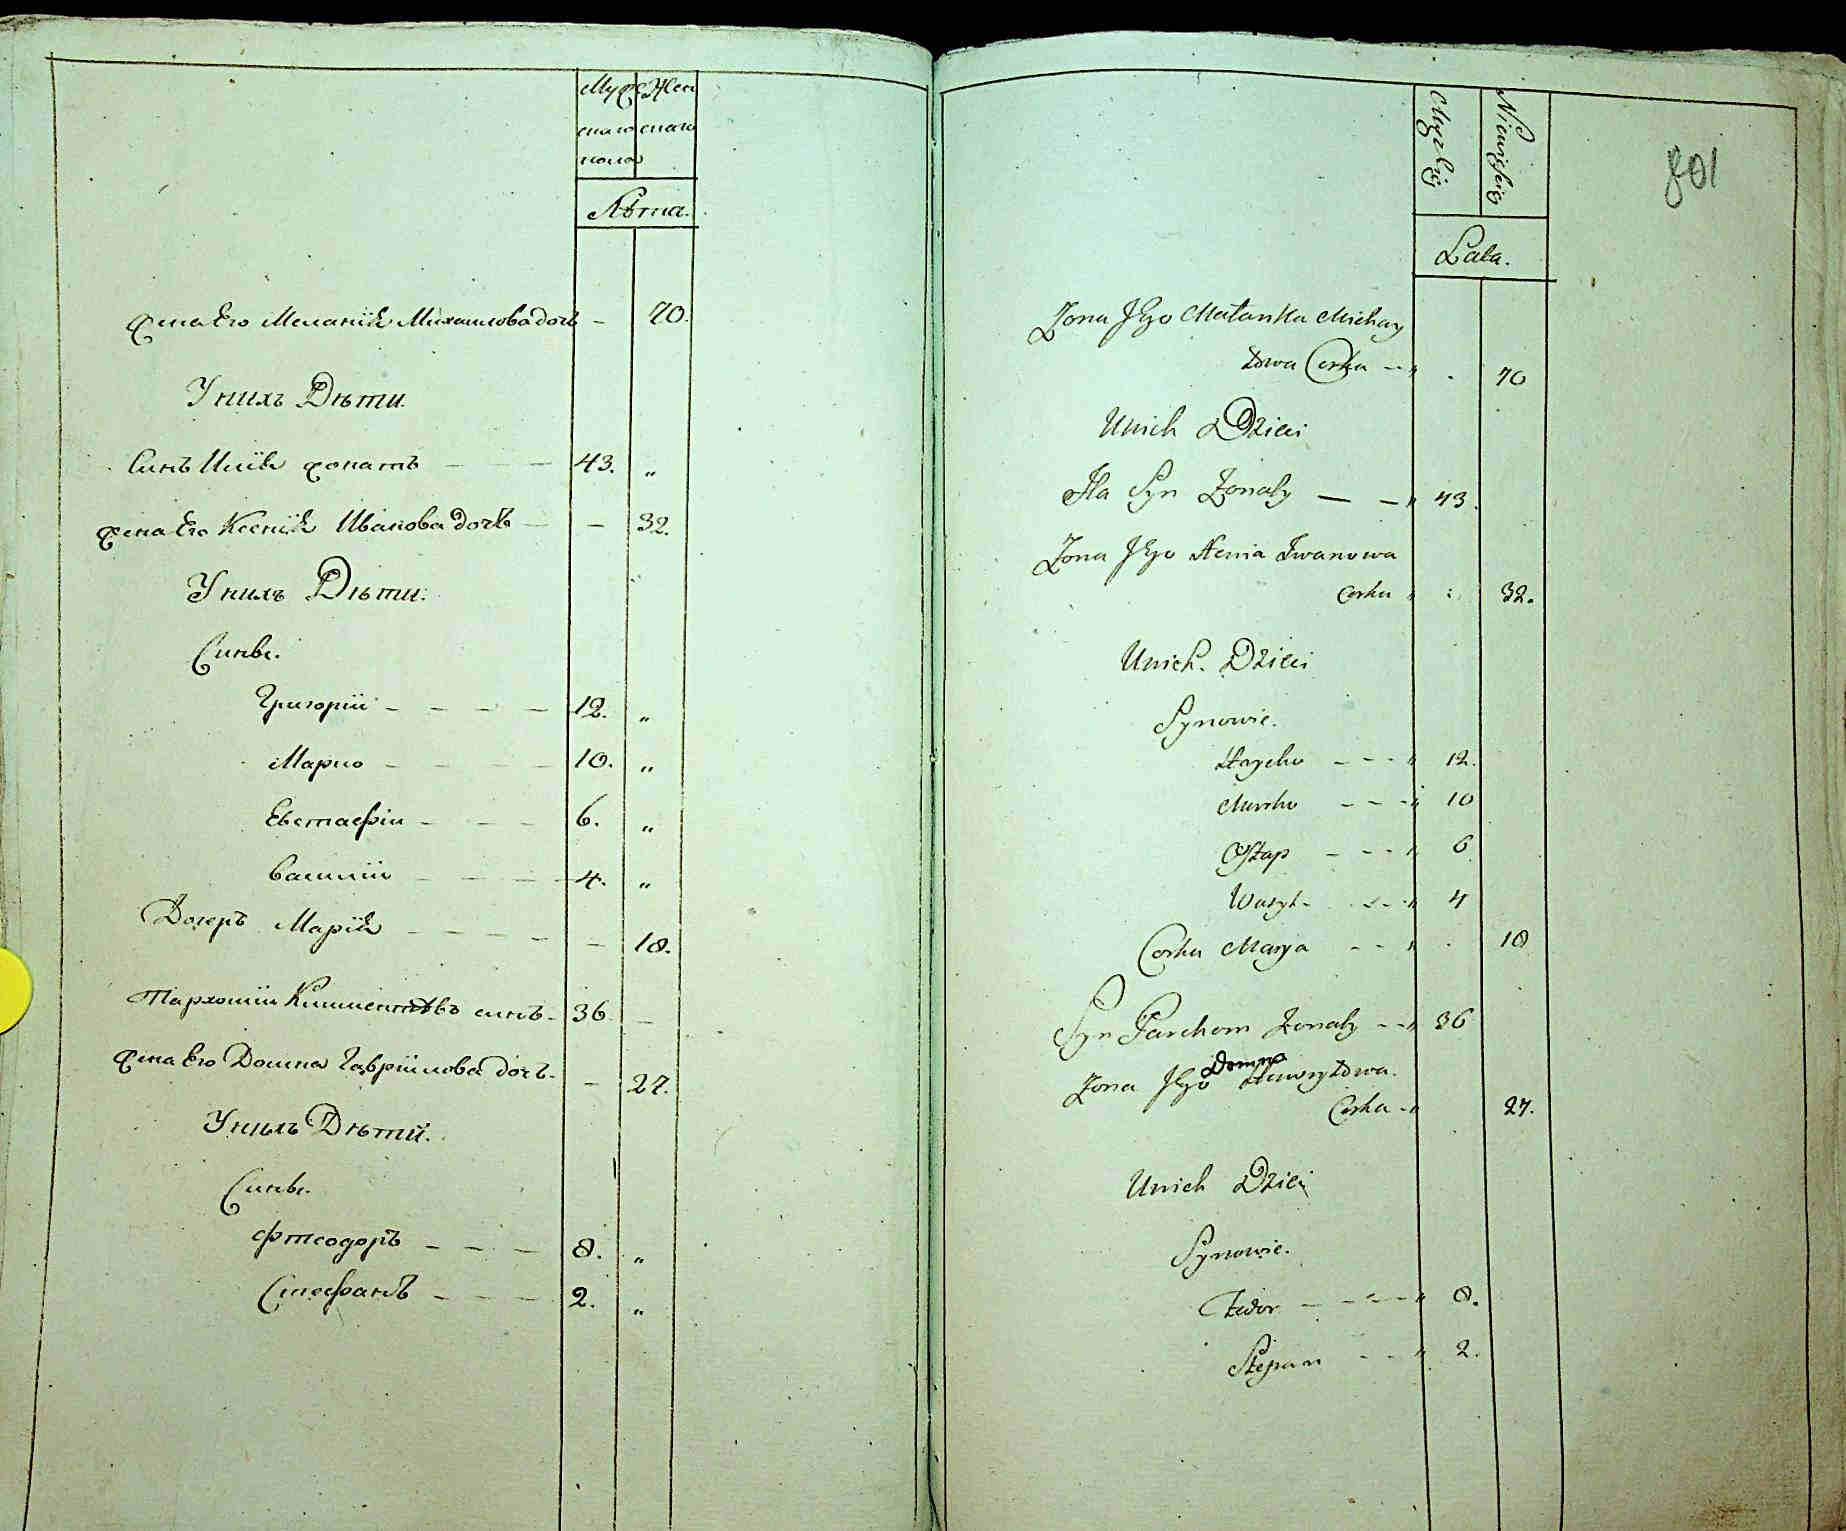 Муж Жен
скаго скаго
пола
Лѣта.
жена Его Меланія Михаилова дочь – 70.
У нихъ Дѣти.
Синъ Илія жонатъ – – – 43. „
жена Его Ксенія Иванова дочь – – 32.
У нихъ Дѣти.
Сины.
Григорій – – – – 12. „
Марко – – – – 10. „
Евстафіи – – – 6. „
Василій – – – – 4. „
Дочерь Марія – – – – – 18.
Пархомій Климентовъ синъ – 36. –
жена Его Домна Гавріилова дочь – – 27.
У нихъ Дѣти.
Сины.
Фтеодоръ – – – 8. „
Стефанъ – – – 2. „
Męzkiej Niewieściej
801
Lata.
Zona Jego Małanka Michay
łowa Corka – „ . 70
U nich Dzieci
Jla Syn Zonaty – – „ 43.
Zona Jego Xenia Jwanowa
Corka „ : 32.
U nich Dzieci
Synowie.
Hrycko – – – „ 12.
Marko – – – „ 10
Ostap – – – „ 6
Wasyl – – – „ 4
Corka Marya – – „ . 18
Syn Parchom Zonaty – – „ 36
Domna
Zona Jego Hawryłowa
Corka – „ 27.
U nich Dzieci
Synowie.
Fedor – – – – „ 8.
Stepan – – „ 2.